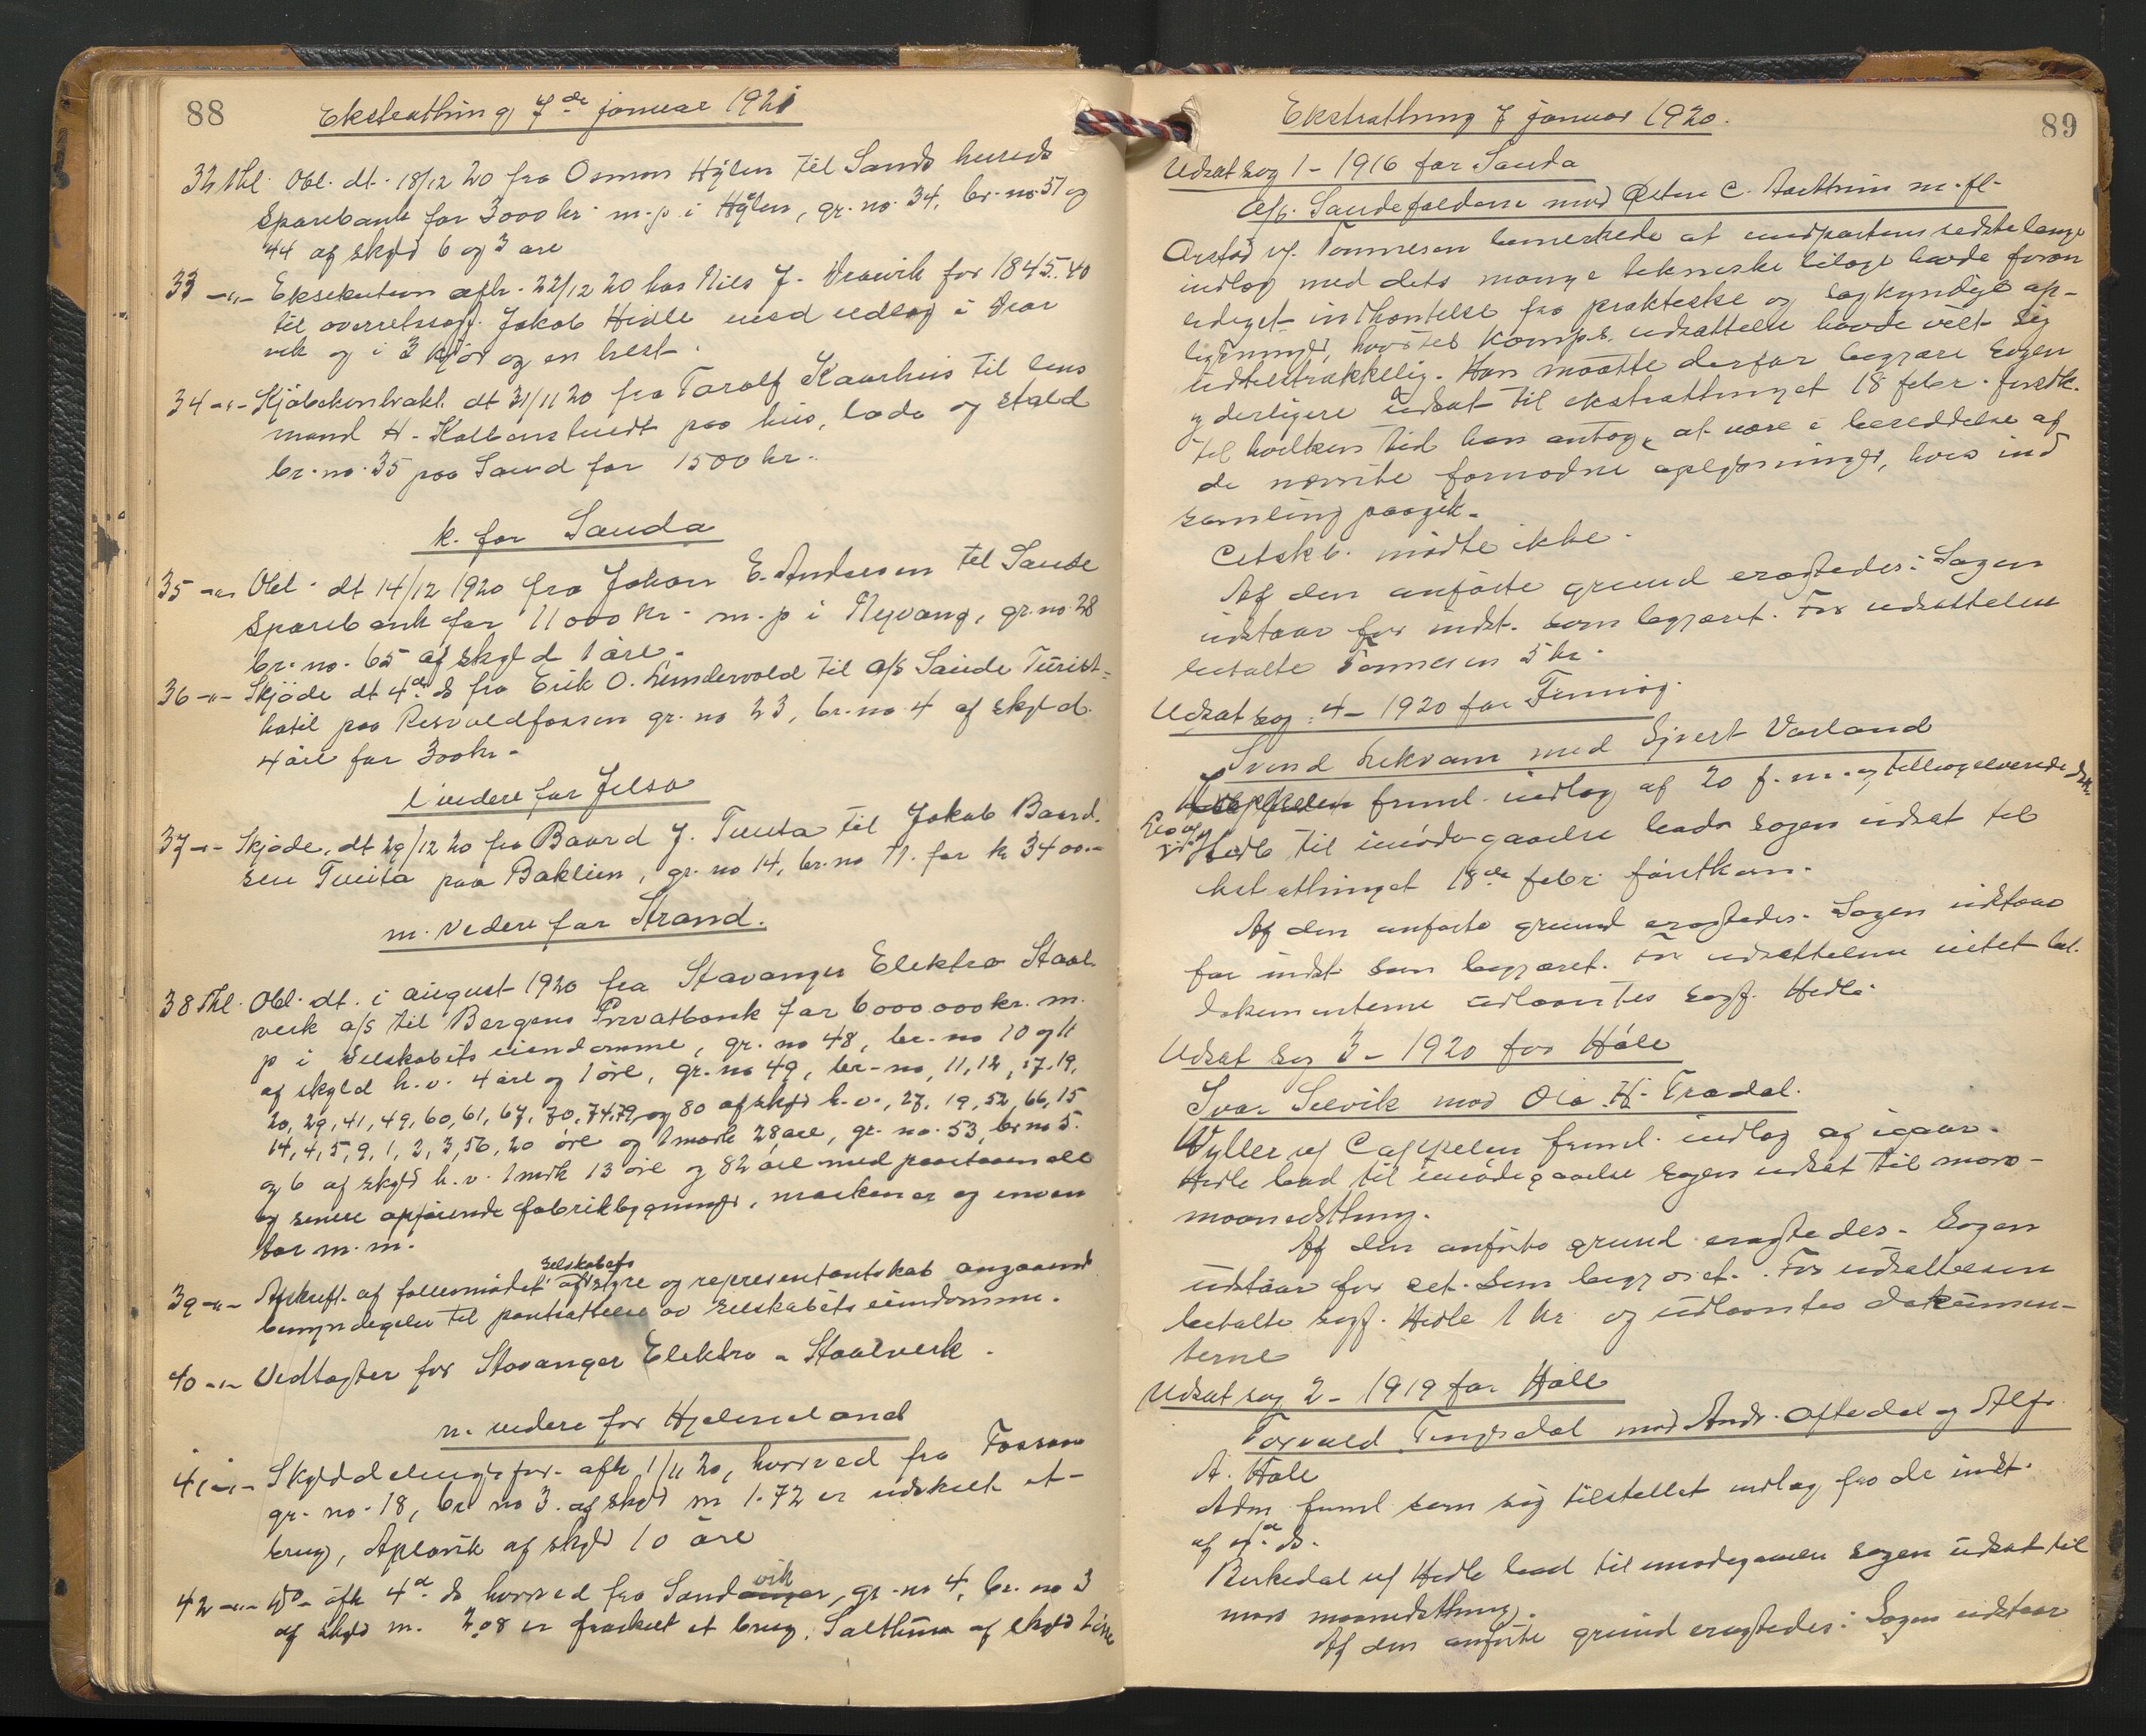 88
Ekstrathing 7de januar 1921
32 thl. Obl. dt. 18/12 20 fra Osmon Hylen til Sands hereds
sparebank for 3000 kr. m. p. i Hylen, gr. no. 34, br. no 51 og
44 af skyld 6 og 3 øre
33 -"- Eksekution afh. 22/12 20 hos Nils J. Vravik for 1845.40
til overretssagf. Jakob Hidle med udlæg i Vra
vik og i 3 kjør og en hest.
34 -"- Kjøbekontrakt dt 31/11 20 fra Torolf Kaarhus til lens
mand H. Kolbenstvedt paa hus, lade og stald
br. no. 35 paa Sand for 1500 kr.
k. for Sauda
35 -"- Obl. dt 14/12 1920 fra Johan E. Andersen til Saude
sparebank for 11000 kr. m. p i Nyvang, gr. no. 28
br. no. 65 af skyld 1 øre.
36 -"- Skjøde dt 4de ds fra Erik O. Lundervold til a/s Saude Turist-
hotil paa Resvoldfossen gr. no 23, br. no 4 af skyld
4 øre for 300 kr.
l videre for Jelsa
37 -"- Skjøde, dt 29/12 20 fra Baard J. Tveita til Jakob Baard
sen Tveita paa Baklien, gr. no 14, br. no 11. for kr 3400.-
m. videre for Strand.
38 thl. Obl. dt. i august 1920 fra Stavanger Elektro Staal
verk a/s til Bergens Privatbank for 6000.000 kr. m.
p i selskabets eiendomme, gr. no 48, br. no 10 og 11
af skyld h. v. 4 øre og 1 øre, gr. no 49, br. no, 11, 12, 17, 19,
20, 29, 41, 49, 60, 61, 67, 70, 74, 79, og 80 af skyld h. v., 27, 19, 52, 66, 15
14, 4, 5, 9, 1, 2, 3, 56, 20 øre og 1 mark 28 øre, gr. no. 53, br no 5.
og 6 af skyld h. v. 1 mrk 13 øre og 82 øre med paastaaende
og senere opførende fabrikbygninger, maskiner og inven
tar m. m.
39 -"- Afskrift af fællesmødet af selskabets styre og representantskab angaaende
bemyndigelse til pantsættelse av selskabets eiendomme.
40 -"- Vedtægter for Stavanger Elektro - Staalverk.
n. videre for Hjelmeland
41 -"- Skylddelingsfor. afh 1/11 20, hvorved fra Fossan
gr. no. 18, br no 3. af skyld m 1.72 er udskilt et
brug, Aplavik af skyld 10 øre
42 -"- Do afh 4d ds hvorved fra Sandvik, gr. no 4, br. no 3
af skyld m. 2.08 er fraskilt et brug, Salthuna af skyld 2 øre
89
Ekstrathing 7 januar 1920.
Udsat sag 1 - 1916 for Sauda
A/s. Saudefaldene mod Østen C. Aarthun m. fl.
Arstad v/ Tonnesen bemerkede at modpartens sidste lange
indlæg med dets mange tekniske bilage havde foran
lediget indhentelse fra praktiske og sagkyndige op-
lysninger, hvortil komp.s udsættelse havde vist sig
utilstrækkelig. Han maatte derfor begjære sagen
yderligere udsat til ekstrathinget 18 febr. førstk.
til hvilken tid han antog at være i besiddelse af
de nævnte fornødne oplysninger, hvis ind
samling paagik.
Citskb. mødte ikke.
Af den anførte grund eragtedes: Sagen
udstaar for indst. som begjæret. For udsættelsen
betalte Tonnesen 5 kr.
Udsat sag 4 - 1920 for Finnøy.
Svend Lekvam mod Sjvert Varland
freml. indlæg af 20 f. m. og tillægsvarende
Hidle til imødegaaelse bad sagen udsat til
ekstrathinget 18de febr. førstkom.
Af den anførte grund eragtedes. Sagen udstaar
for indst som begjæret. For udsættelsen intet bet.
Dokumenterne udlaantes sagf. Hidle.
Udsat sag 3 - 1920 for Høle
Ivar Selvik mod Ola H. Tradal.
Wyller v/ Cappelen freml. indlæg af igaar.
Hidle bad til imødegaaelse sagen udsat til mars-
maanedsthing.
Af den anførte grund eragtedes. Sagen
udstaar for cit. som begjæret. For udsættelsen
betalte sagf. Hidle 1 kr. og udlaantes dokumen-
terne
Udsat sag 2 - 1919 for Høle
Torvald Tengesdal mod Andr. Oftedal og Alfr.
A. Høle
Adm freml som sig tilstellet indlæg fra de indst.
af
Birkedal v/ Hidle bad til imødegaaelse sagen udsat til
mars maanedsthing.
Af den anførte grund eragtedes: Sagen udstaar